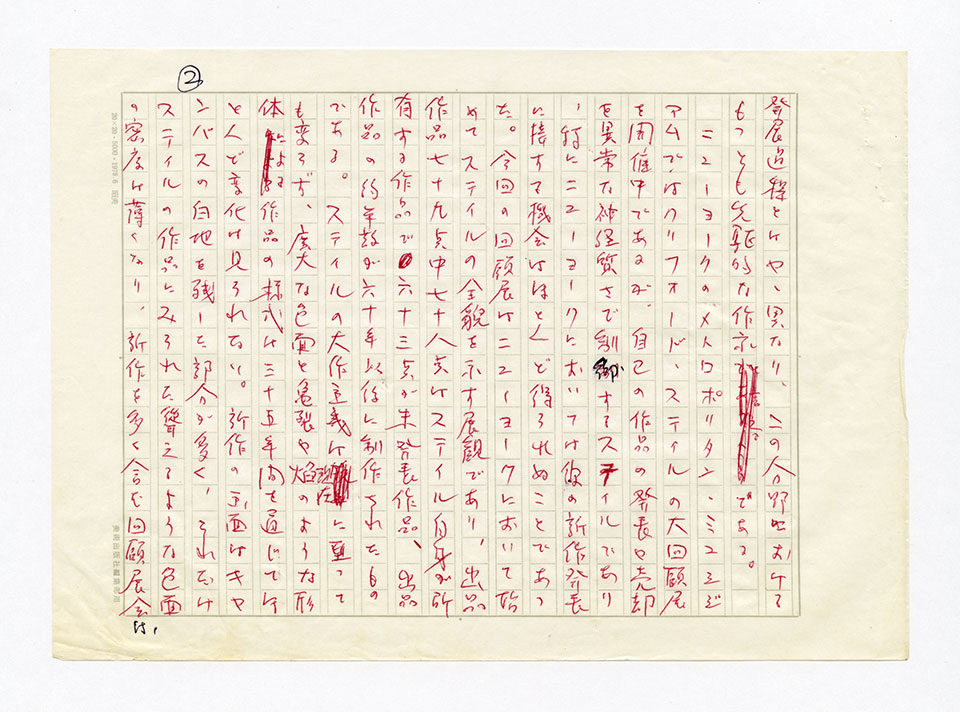 ②
発展過程とはやゝ異なり、この分野におけるもっとも先駆的な作家である。
ニューヨークのメトロポリタン・ミュージ
アムではクリフォード・スティルの大回顧展
を開催中であるが、自己の作品の発表や売却
を異常な神経質さで制御するスティルであり
、特にニューヨークにおいては彼の新作発表
に接する機会はほとんど得られぬことであっ
た。今回の回顧展はニューヨークにおいて始
めてスティルの全貌を示す展観であり、出品
作品七十九点中七十八点はスティル自身が所
有する作品で六十三点が未発表作品、出品
作品の約半数が六十年以後に制作されたもの
である。スティルの大作主義は現在に至って
も変らず、広大な色面と亀裂や焔のような形
体による作品の様式は三十五年間を通じてほ
とんど変化は見られない。新作の画面はキャ
ンバスの白地を残した部分が多く、それだけ
スティルの作品にみられた聳えるような色面
の密度は薄くなり、新作を多く含む回顧展会
は、
20×20・5000・1979.6
美術出版社編集部用